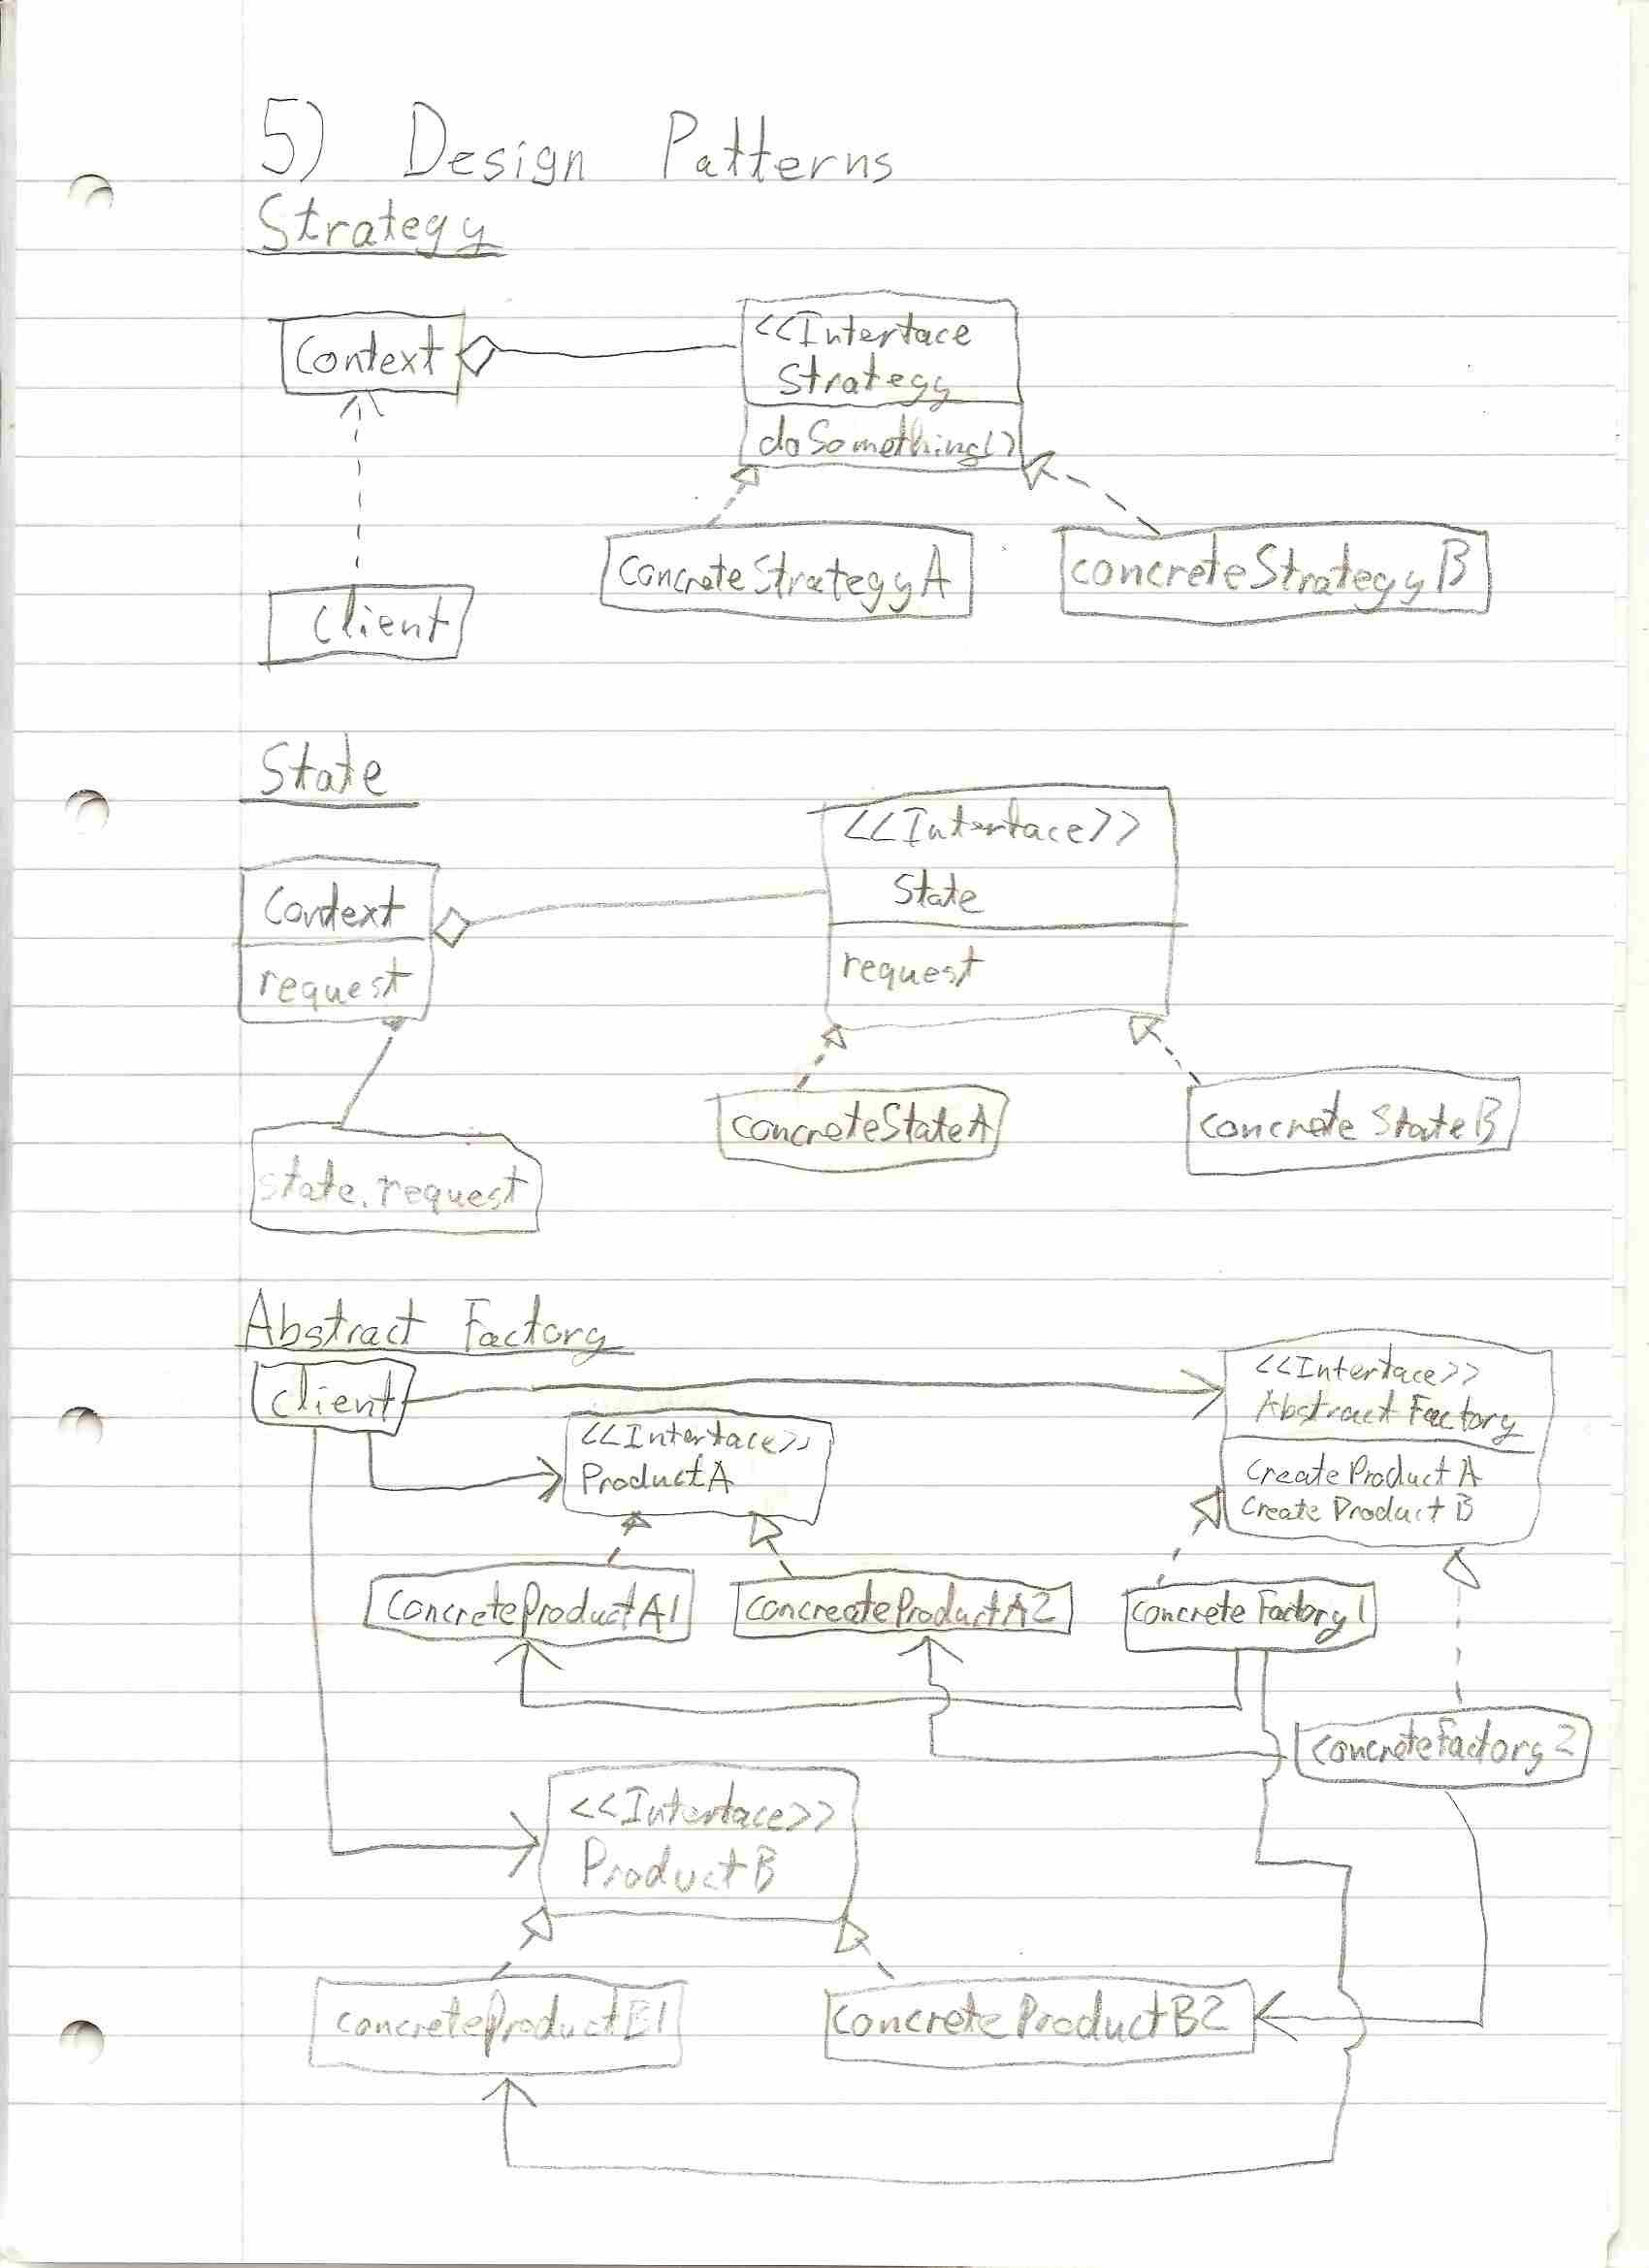 5) Design Patterns
Strategy
Context
<<Interface
Strategy
doSomething()
concreteStrategyA
concreteStrategyB
Client
State
<<Interface>>
State
request
Context
request
concreteStateA
concreteStateB
state.request
Abstract Factory
Client
<<Interface>>
AbstractFactory
createProductA
createProductB
<<Interface>>
ProductA
concreteProductA1
concreateProductA2
concreteFactory1
concreteFactory2
<<Interface>>
ProductB
concreteProductB1
concreteProductB2